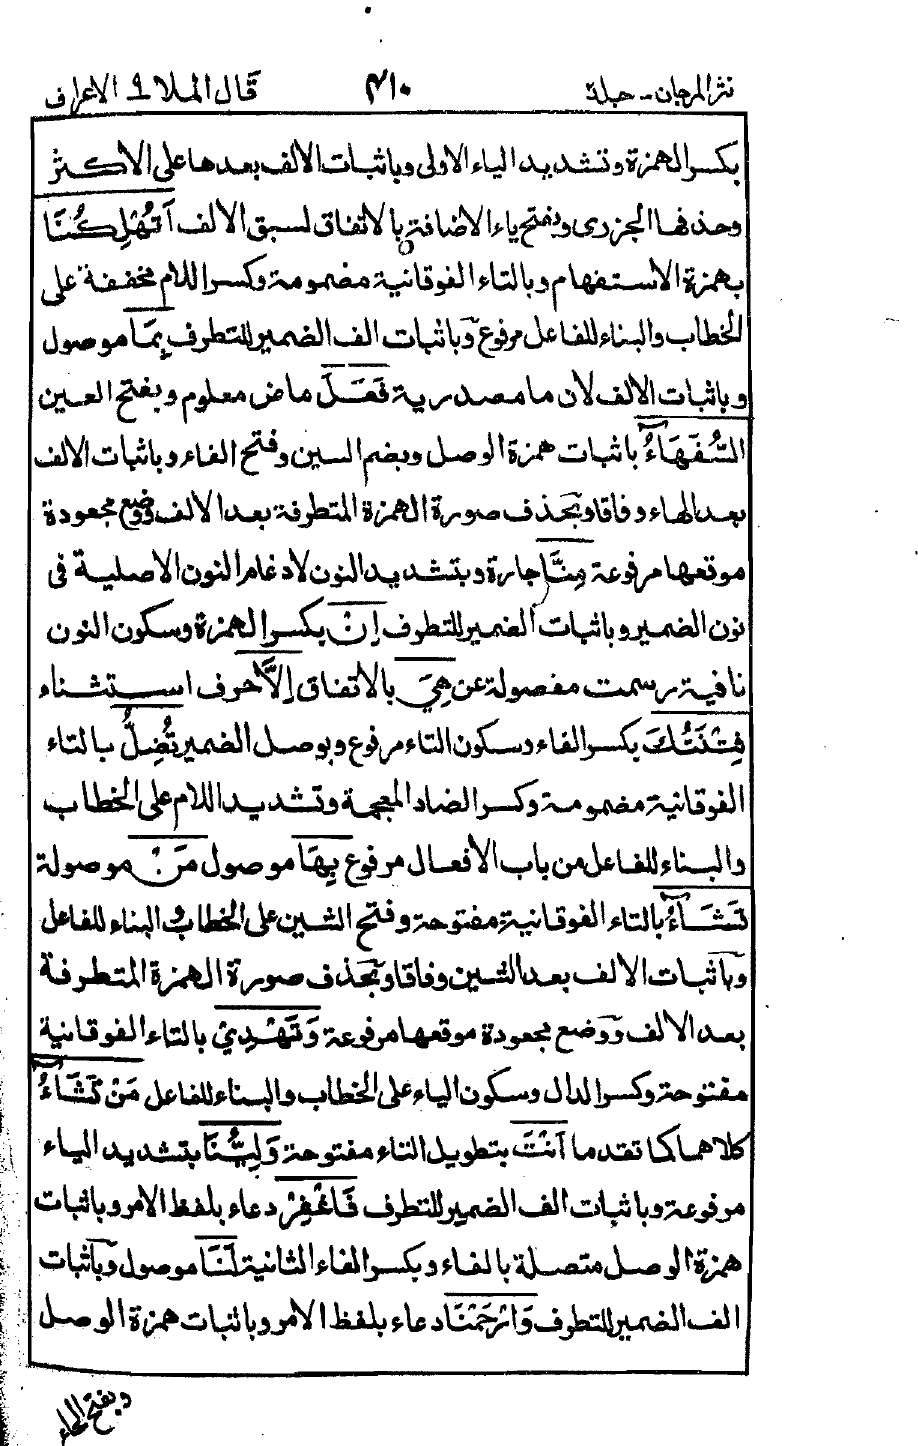 نثر المرجان - جلد ٢ ٤١٠ قال الملا ٩ الاعراف
بكسر الهمزة وتشديد الياء الاولى وباثبات الالف بعدها على الاكثر
وحذفها الجزرى وبفتح ياء الاضافة بالاتفاق لسبق الالف اَتُهْلِكُنَا
بهمزة الاستفهام وبالتاء الفوقانية مضمومة وكسر اللام مخففة على
الخطاب والبناء للفاعل مرفوع وباثبات الف الضمير للتطرف بِمَا موصول
وباثبات الالف لان ما مصدرية فَعَلَ ماض معلوم وبفتح العين
السُّفَهَاءُ باثبات همزة الوصل وبضم السين وفتح الفاء وباثبات الالف
بعد الهاء وفاقا وبحذف صورة الهمزة المتطرفة بعد الالف ووضع مجعودة
موقعها مرفوعة مِنَّا جارة وبتشديد النون لادغام النون الاصلية فى
نون الضمير وباثبات الف الضمير للتطرف اِنْ بكسر الهمزة وسكون النون
نافية رسمت مفصولة عن هِيَ بالاتفاق اِلَّا حرف استثناء
فِتْنَتُكَ بكسر الفاء وسكون التاء مرفوع وبوصل الضمير تُضِلُّ بالتاء
الفوقانية مضمومة وكسر الضاد المعجمة وتشديد اللام على الخطاب
والبناء للفاعل من باب الافعال مرفوع بِهَا موصول مَنْ موصولة
تَشَاءُ بالتاء الفوقانية مفتوحة وفتح الشين على الخطاب والبناء للفاعل
وباثبات الالف بعد الشين وفاقا وبحذف صورة الهمزة المتطرفة
بعد الالف ووضع مجعودة موقعها مرفوعة وَتَهْدِيْ بالتاء الفوقانية
مفتوحة وكسر الدال وسكون الياء على الخطاب والبناء للفاعل مَنْ تَشَاءُ
كلاهما كما تقدما اَنْتَ بتطويل التاء مفتوحة وَلِيُّنَا بتشديد الياء
مرفوعة وباثبات الف الضمير للتطرف فَاغْفِرْ دعاء بلفظ الامر وباثبات
همزة الوصل متصلة بالفاء وبكسر الفاء الثانية لَنَا موصول وباثبات
الف الضمير للتطرف وَارْحَمْنَا دعاء بلفظ الامر وباثبات همزة الوصل
وبفتح الحاء